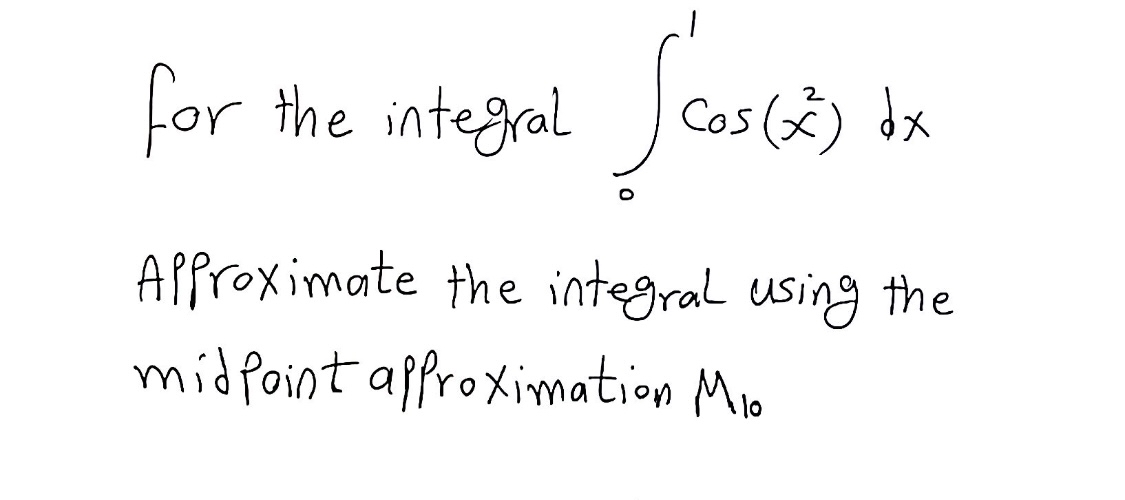 for the integral ∫₀¹ Cos(x²) dx
Approximate the integral using the
midpoint approximation M₁₀